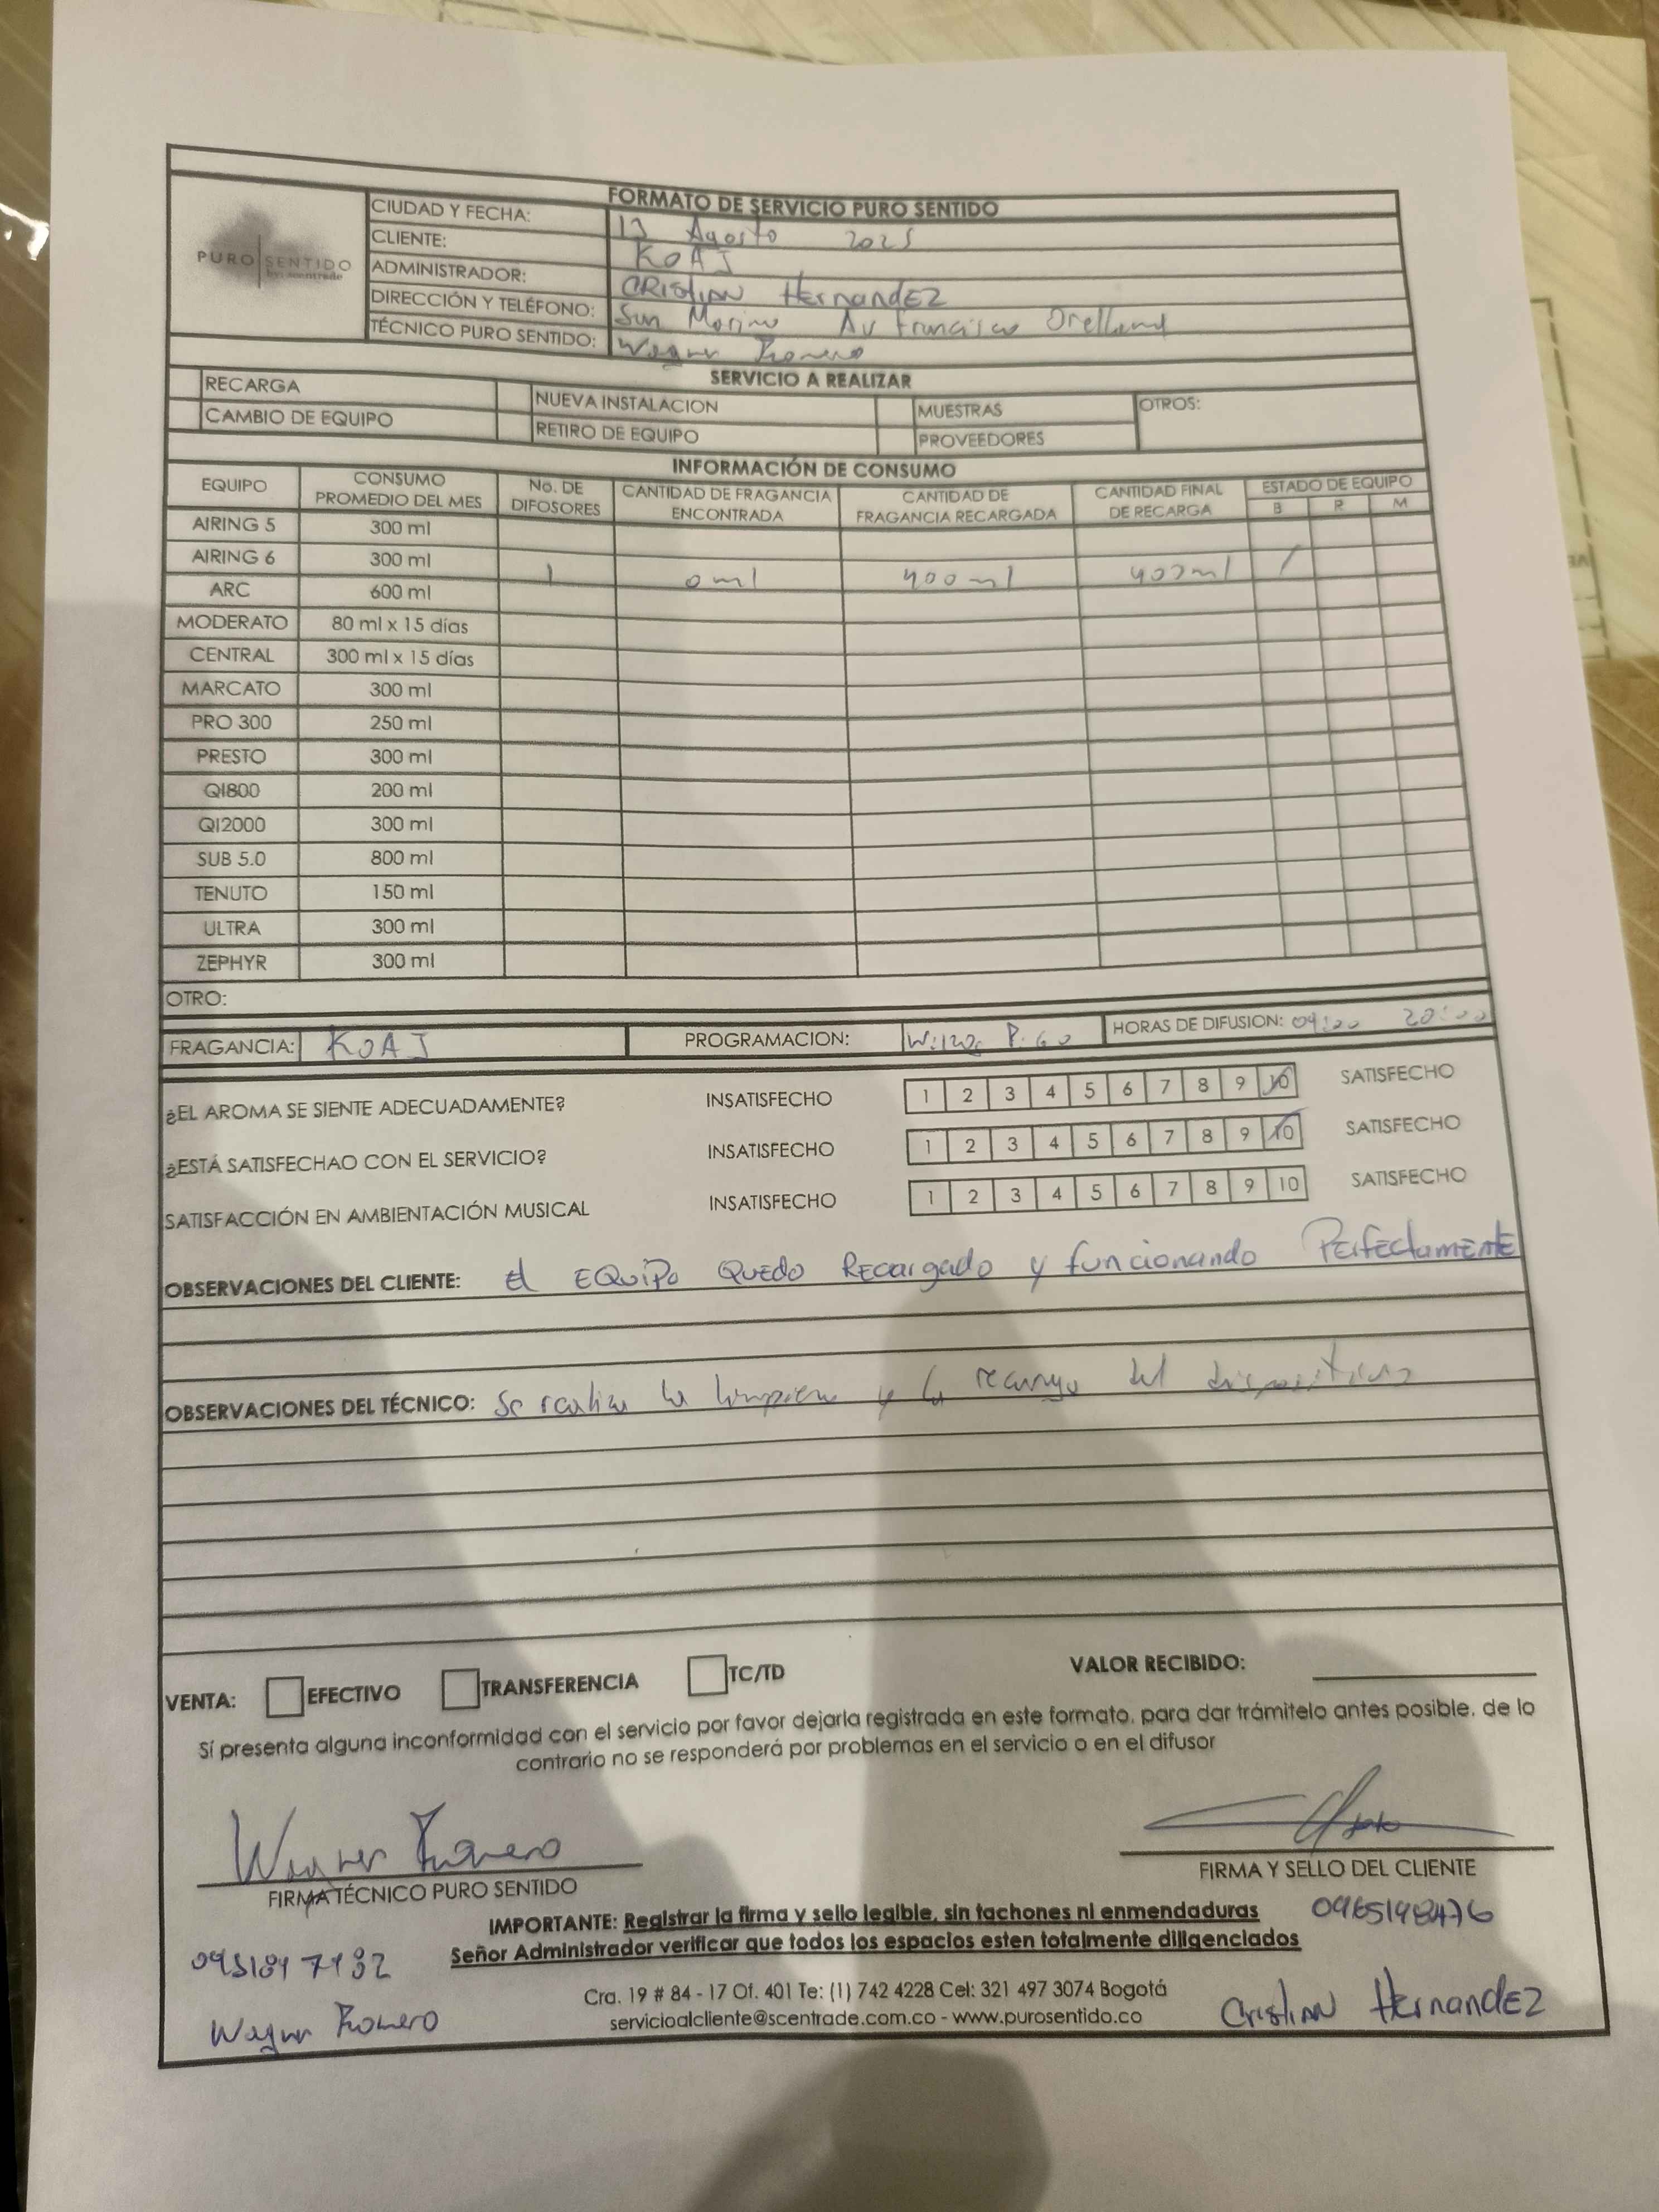 FORMATO DE SERVICIO PURO SENTIDO
PURO SENTIDO
by: scentrade
CIUDAD Y FECHA: 13 Agosto 2025
CLIENTE: KOAJ
ADMINISTRADOR: CRistiAN HernandEZ
DIRECCIÓN Y TELÉFONO: San Marino Av Francisco Orellana
TÉCNICO PURO SENTIDO: Wagner Romero
SERVICIO A REALIZAR
RECARGA NUEVA INSTALACION MUESTRAS OTROS:
CAMBIO DE EQUIPO RETIRO DE EQUIPO PROVEEDORES
INFORMACIÓN DE CONSUMO
EQUIPO CONSUMO PROMEDIO DEL MES No. DE DIFOSORES CANTIDAD DE FRAGANCIA ENCONTRADA CANTIDAD DE FRAGANCIA RECARGADA CANTIDAD FINAL DE RECARGA ESTADO DE EQUIPO
B R M
AIRING 5 300 ml
AIRING 6 300 ml 1 0 ml 400 ml 400 ml /
ARC 600 ml
MODERATO 80 ml x 15 días
CENTRAL 300 ml x 15 días
MARCATO 300 ml
PRO 300 250 ml
PRESTO 300 ml
QI800 200 ml
QI2000 300 ml
SUB 5.0 800 ml
TENUTO 150 ml
ULTRA 300 ml
ZEPHYR 300 ml
OTRO:
FRAGANCIA: KOAJ PROGRAMACION: HORAS DE DIFUSION: 09:00 20:00
¿EL AROMA SE SIENTE ADECUADAMENTE? INSATISFECHO 1 2 3 4 5 6 7 8 9 10 SATISFECHO
¿ESTÁ SATISFECHAO CON EL SERVICIO? INSATISFECHO 1 2 3 4 5 6 7 8 9 10 SATISFECHO
SATISFACCIÓN EN AMBIENTACIÓN MUSICAL INSATISFECHO 1 2 3 4 5 6 7 8 9 10 SATISFECHO
OBSERVACIONES DEL CLIENTE: El EQUiPo QUEdo REcargado y funcionando PerfectamENtE
OBSERVACIONES DEL TÉCNICO: Se realiza la limpieza y la recarga del dispositivo
VENTA: EFECTIVO TRANSFERENCIA TC/TD VALOR RECIBIDO:
Sí presenta alguna inconformidad con el servicio por favor dejarla registrada en este formato, para dar trámitelo antes posible, de lo
contrario no se responderá por problemas en el servicio o en el difusor
Wagner Romero
FIRMA TÉCNICO PURO SENTIDO
FIRMA Y SELLO DEL CLIENTE
IMPORTANTE: Registrar la firma y sello legible, sin tachones ni enmendaduras
0965198476
Señor Administrador verificar que todos los espacios esten totalmente diligenciados
Cra. 19 # 84 - 17 Of. 401 Te: (1) 742 4228 Cel: 321 497 3074 Bogotá
servicioalcliente@scentrade.com.co - www.purosentido.co
Wagner Romero
CristiAN HernandEZ